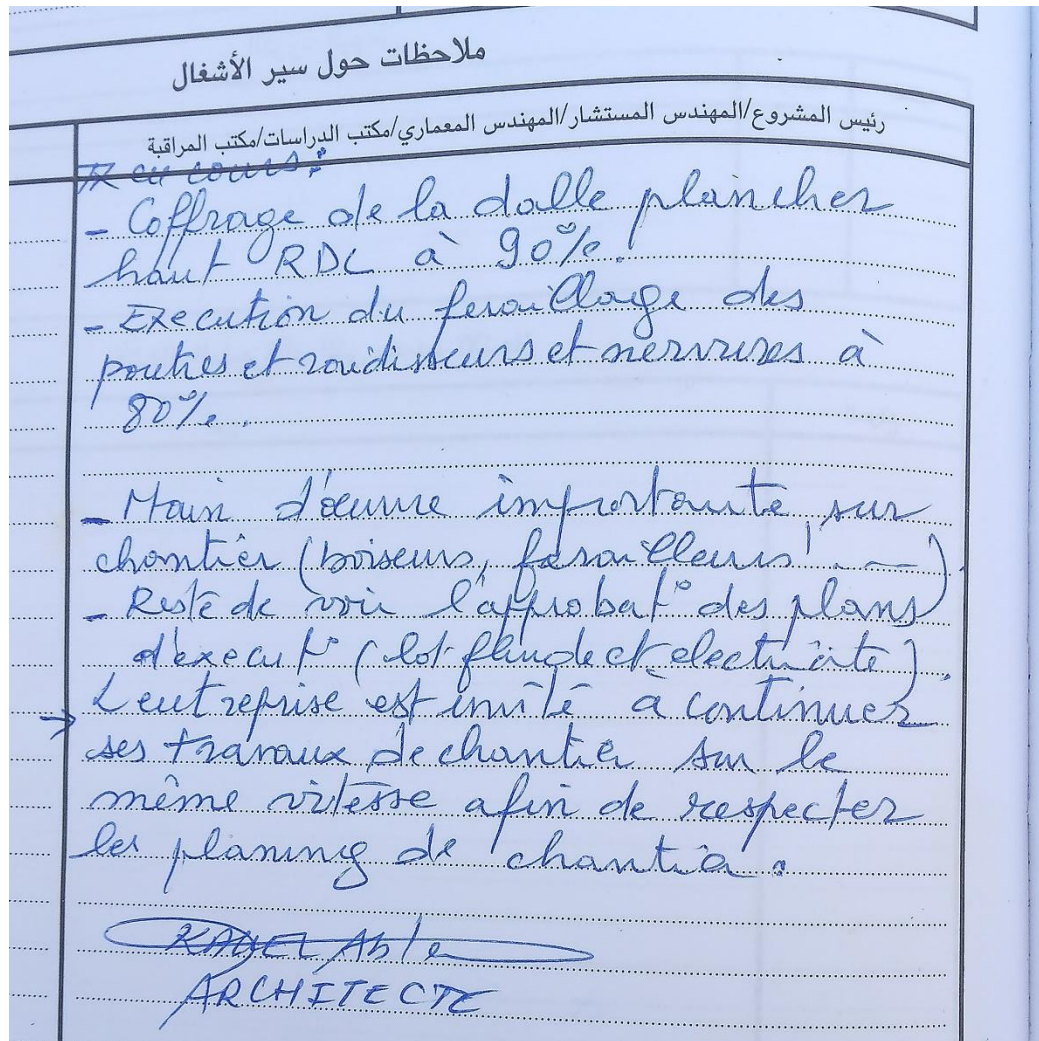 ملاحظات حول سير الأشغال
رئيس المشروع/المهندس المستشار/المهندس المعماري/مكتب الدراسات/مكتب المراقبة
TX en cours:
- Coffrage de la dalle plancher
haut RDC à 90%.
- Execution du feraillage des
poutres et raidisseurs et nervures à
80%.
- Main d'œuvre importante sur
chantier (boiseurs, ferailleurs, ---).
- Reste de voir l'approbat° des plans
d'execut° (lot fluide et electricite).
→ L'entreprise est invité à continuer
ses travaux de chantier sur le
même vitesse afin de respecter
les planing de chantier.
ARCHITECTE